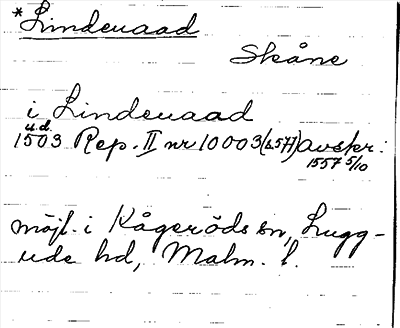 *Lindeuaad
Skåne
i Lindeuaad
u.d.
1503 Rep. II nr 10003 (s.577) avskr.:
1557 5/10
möjl. i Kågeröds sn, Lugg-
ude hd, Malm. l.